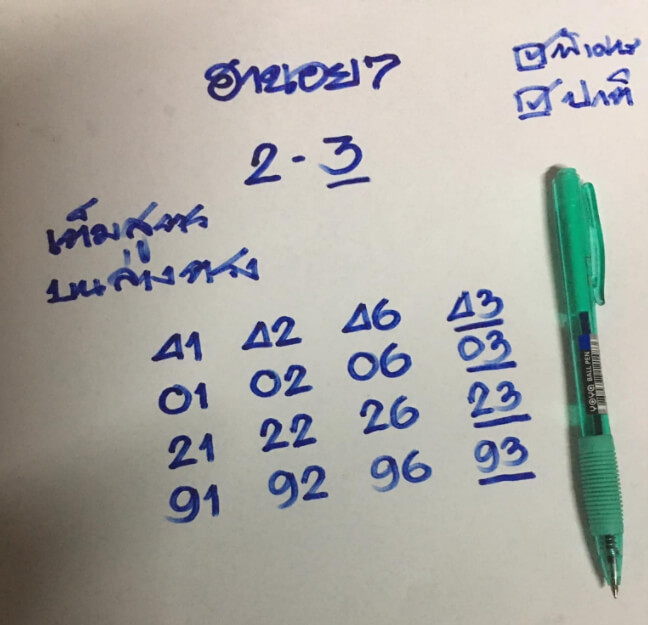 ฮานอย7
☑ พิเศษ
☑ ปกติ
2-3
เต็มสูตร
บนล่างตรง
41 42 46 43
01 02 06 03
21 22 26 23
91 92 96 93
YOYO BALL PEN